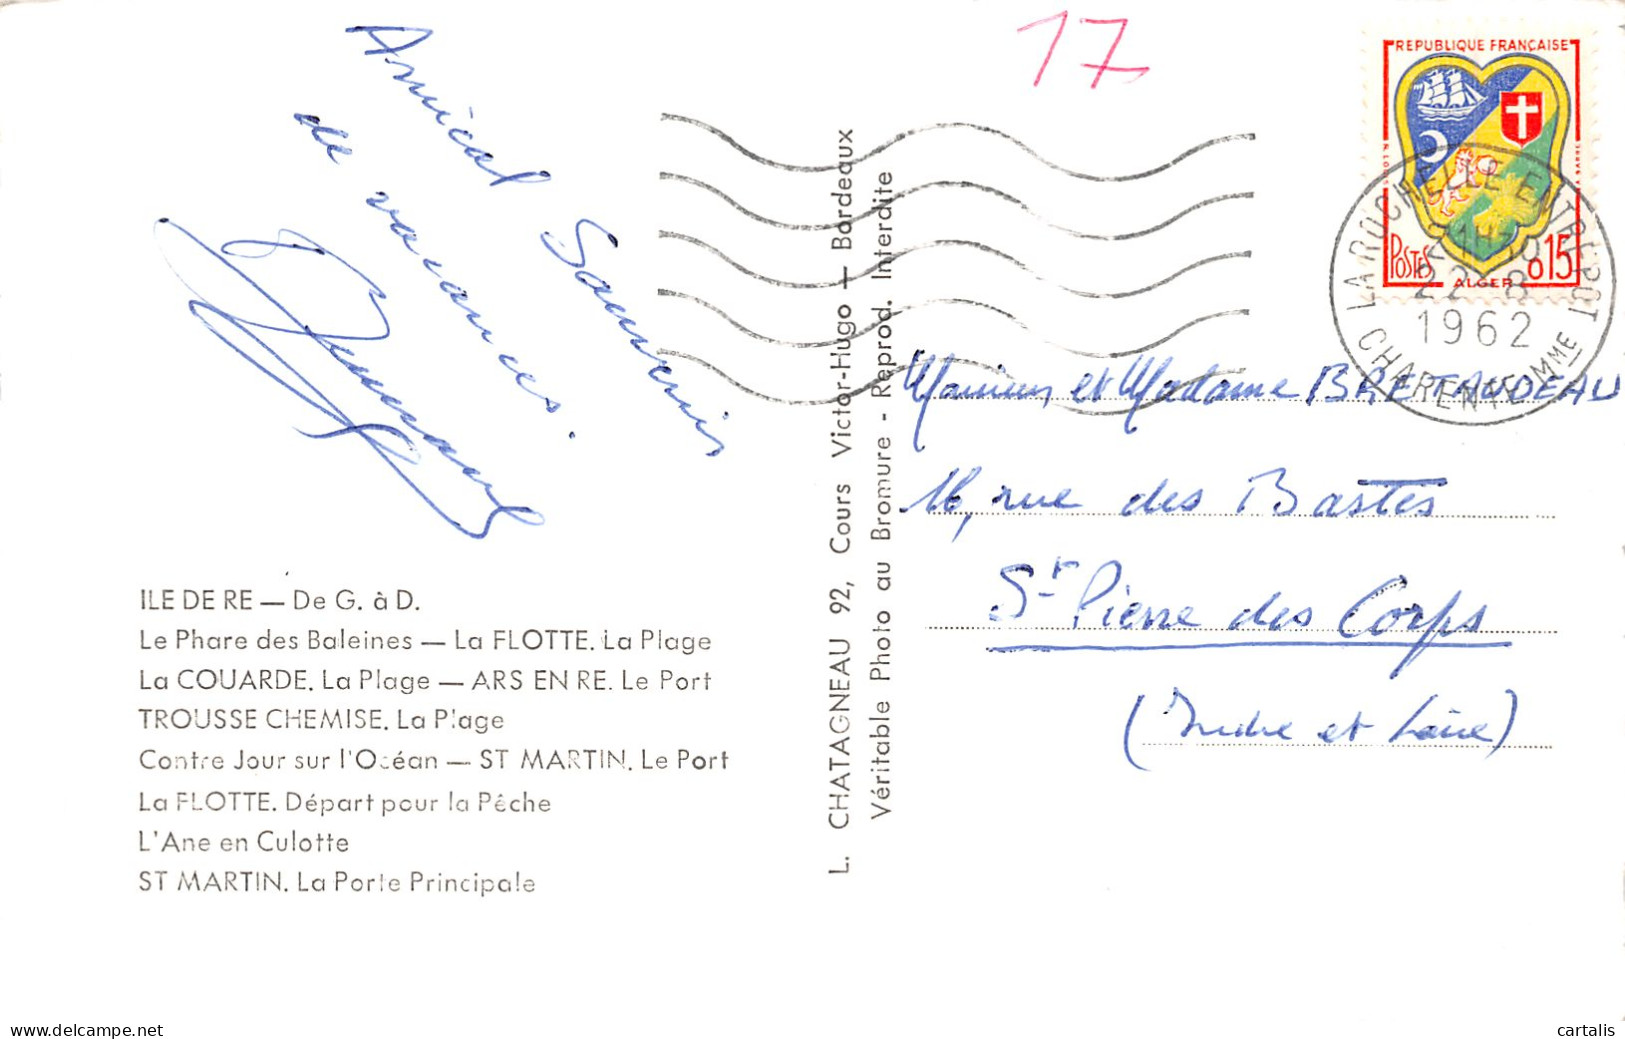 Amical Souvenir
de vacances.
ILE DE RE — De G. à D.
Le Phare des Baleines — La FLOTTE. La Plage
La COUARDE. La Plage — ARS EN RE. Le Port
TROUSSE CHEMISE. La Plage
Contre Jour sur l'Océan — ST MARTIN. Le Port
La FLOTTE. Départ pour la Pêche
L'Ane en Culotte
ST MARTIN. La Porte Principale
L. CHATAGNEAU 92, Cours Victor-Hugo — Bordeaux
Véritable Photo au Bromure - Reprod. Interdite
17
REPUBLIQUE FRANÇAISE
POSTES
0,15
ALGER
LA ROCHELLE ENTREPOT
22 -8
1962
CHARENTE MME
Monsieur et Madame BRETAUDEAU
16, rue des Bastes
St Pierre des Corps
(Indre et Loire)
www.delcampe.net
cartalis